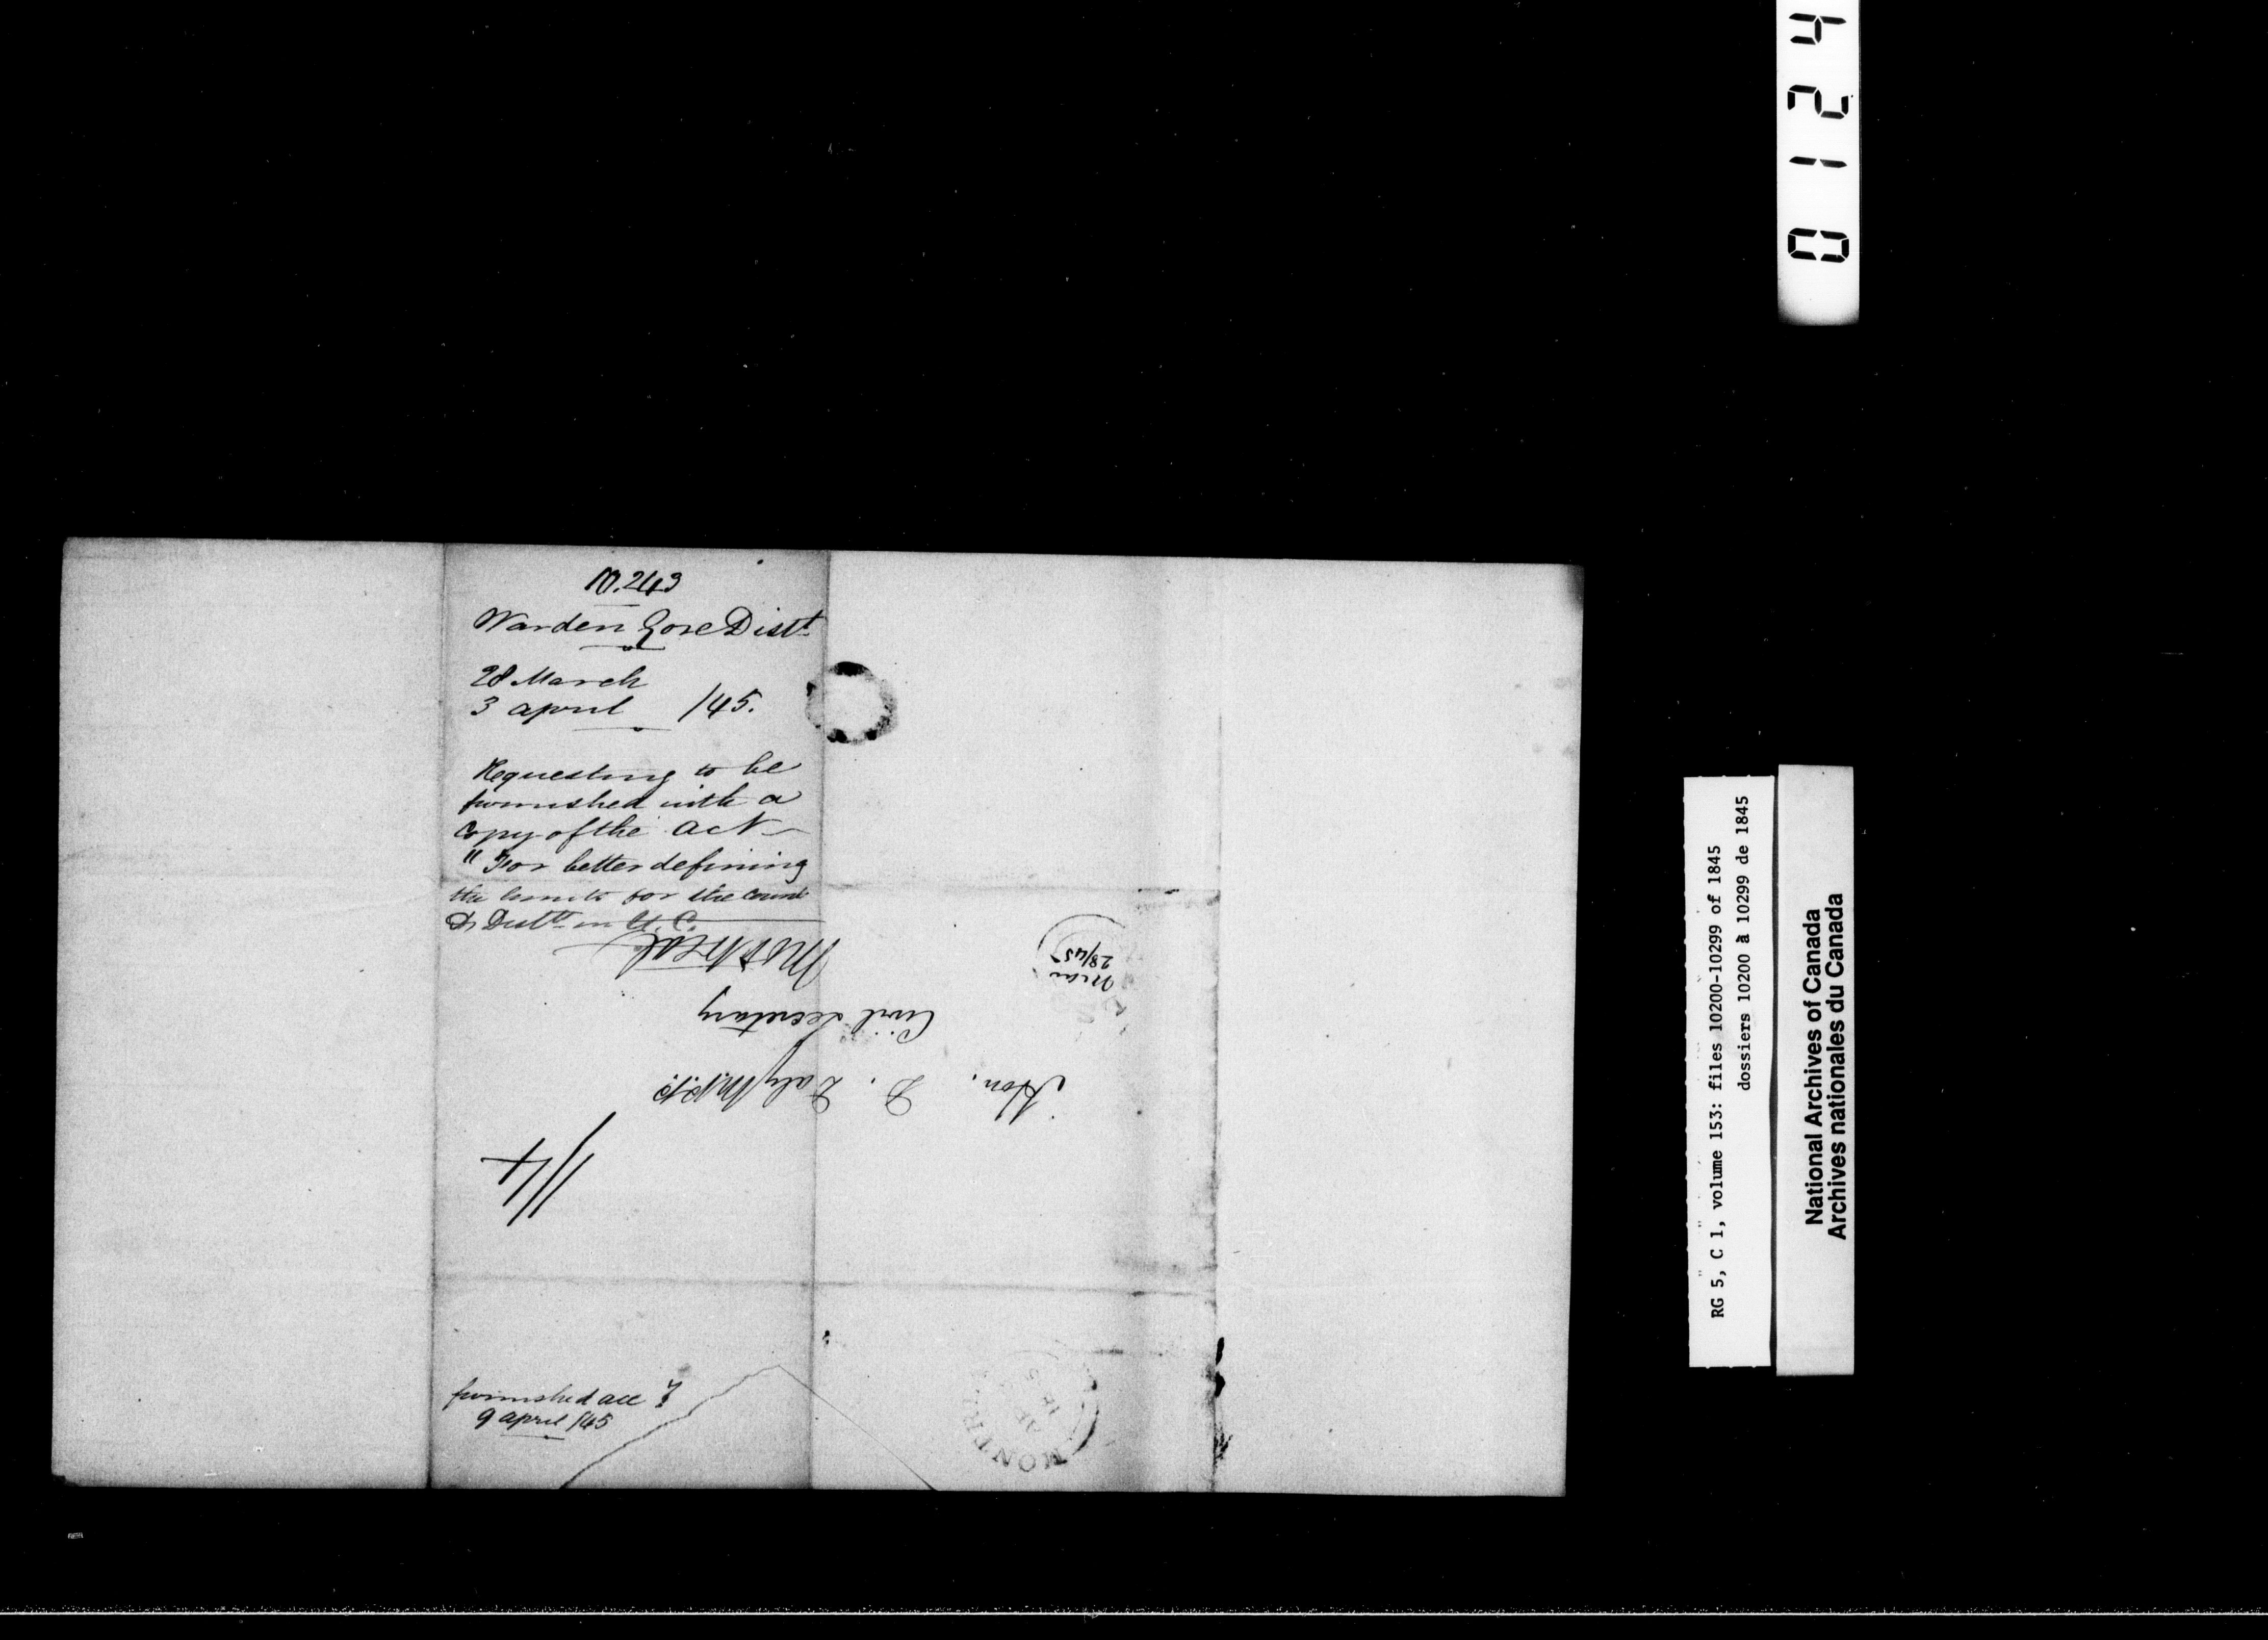 No. 243
Warden Gore Distt
28 March
3 april /45.
Requesting to be
furnished with a
copy of the act
"For better defining
the limits for the Count
& Distts in U. C.
furnished acc
9 april /45
Hon. D. Daly M.P.P.
Civil Secretary
Montreal
1/4
28/45
MONTR
0124
RG 5, C 1, volume 153: files 10200-10299 of 1845
dossiers 10200 à 10299 de 1845
National Archives of Canada
Archives nationales du Canada